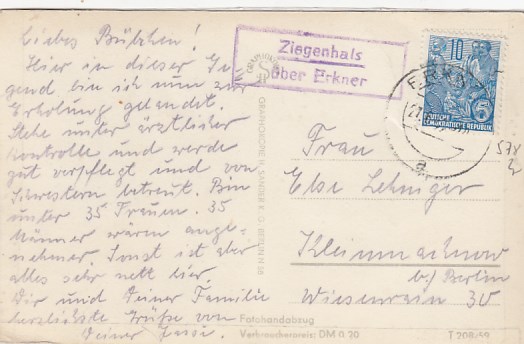 Liebes Bübchen!
Hier in dieser Ge-
gend bin ich nun zur
Erholung gelandet.
Stehe unter ärztlicher
Kontrolle und werde
gut verpflegt und von
Schwestern betreut. Bin
unter 35 Frauen. 35
Männer wären ange-
nehmer. Sonst ist aber
alles sehr nett hier.
Dir und Deiner Familie
herzlichste Grüße von
Deiner
Ziegenhals
über Erkner
10
DEUTSCHE
DEMOKRATISCHE REPUBLIK
a
GRAPHOKOPIE H. SANDER K. G. BERLIN N 58
Frau
Else Lehniger
Kleinmachnow
b/ Berlin
Wiesenrain 30
Fotohandabzug
Verbraucherpreis: DM 0.20
T 208/59